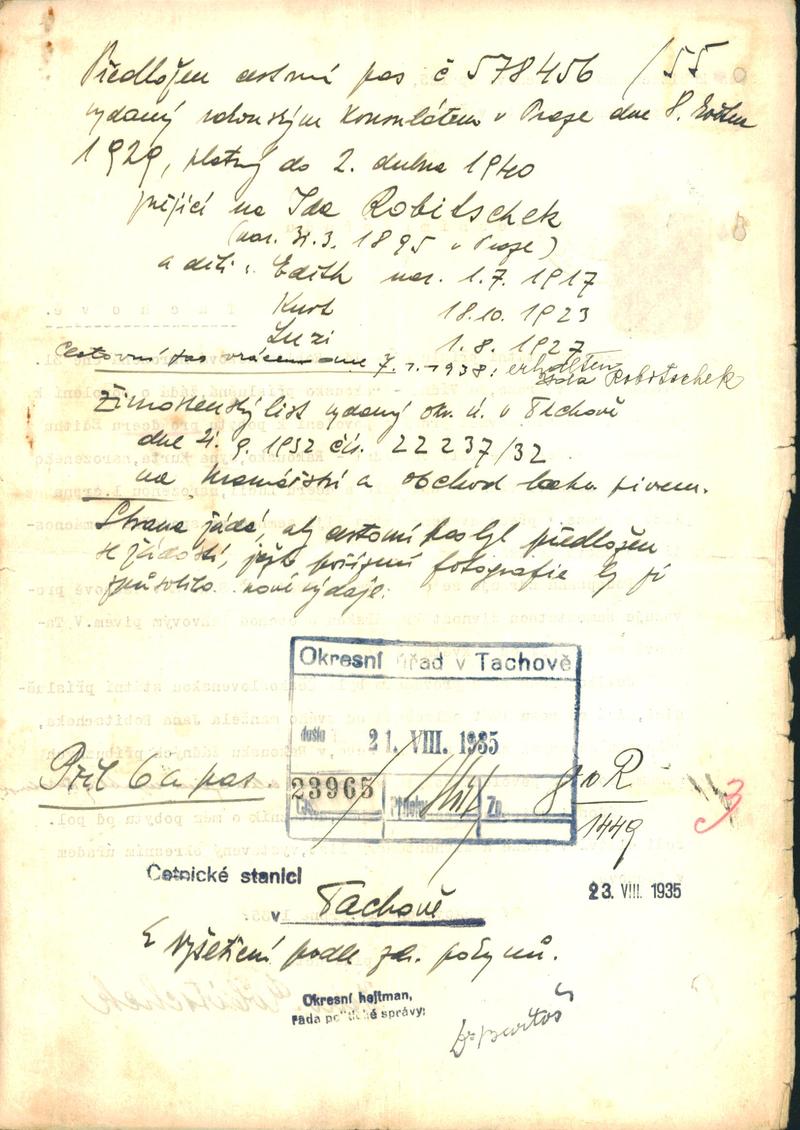 Předložen cestovní pas č 578456 /55
vydaný rakouským konsulátem v Praze dne 8. května
1929, platný do 2. dubna 1940
znějící na Ida Robitschek
(nar. 31.3. 1895 v Praze)
a děti: Edith nar. 1.7. 1917
Kurt 18.10. 1923
Luzi 1.8. 1927
Cestovní pas vrácen dne 7.1.1938: erhalten
Ida Robitschek
Živnostenský list vydaný okr. ú. v Tachově
dne 21. 9. 1932 čís. 22237/32
na kramářství a obchod lahv. pivem.
Strana žádá, aby cestovní pas byl předložen
se žádostí, jejíž pořízení fotografie by jí
způsobilo nové výdaje.
Okresní úřad v Tachově
došlo 21. VIII. 1935
23965
Příl 6 a pas
1449
3
Četnické stanici
23. VIII. 1935
v Tachově
k vyšetření podle zd. pokynů.
Okresní hejtman,
rada politické správy: